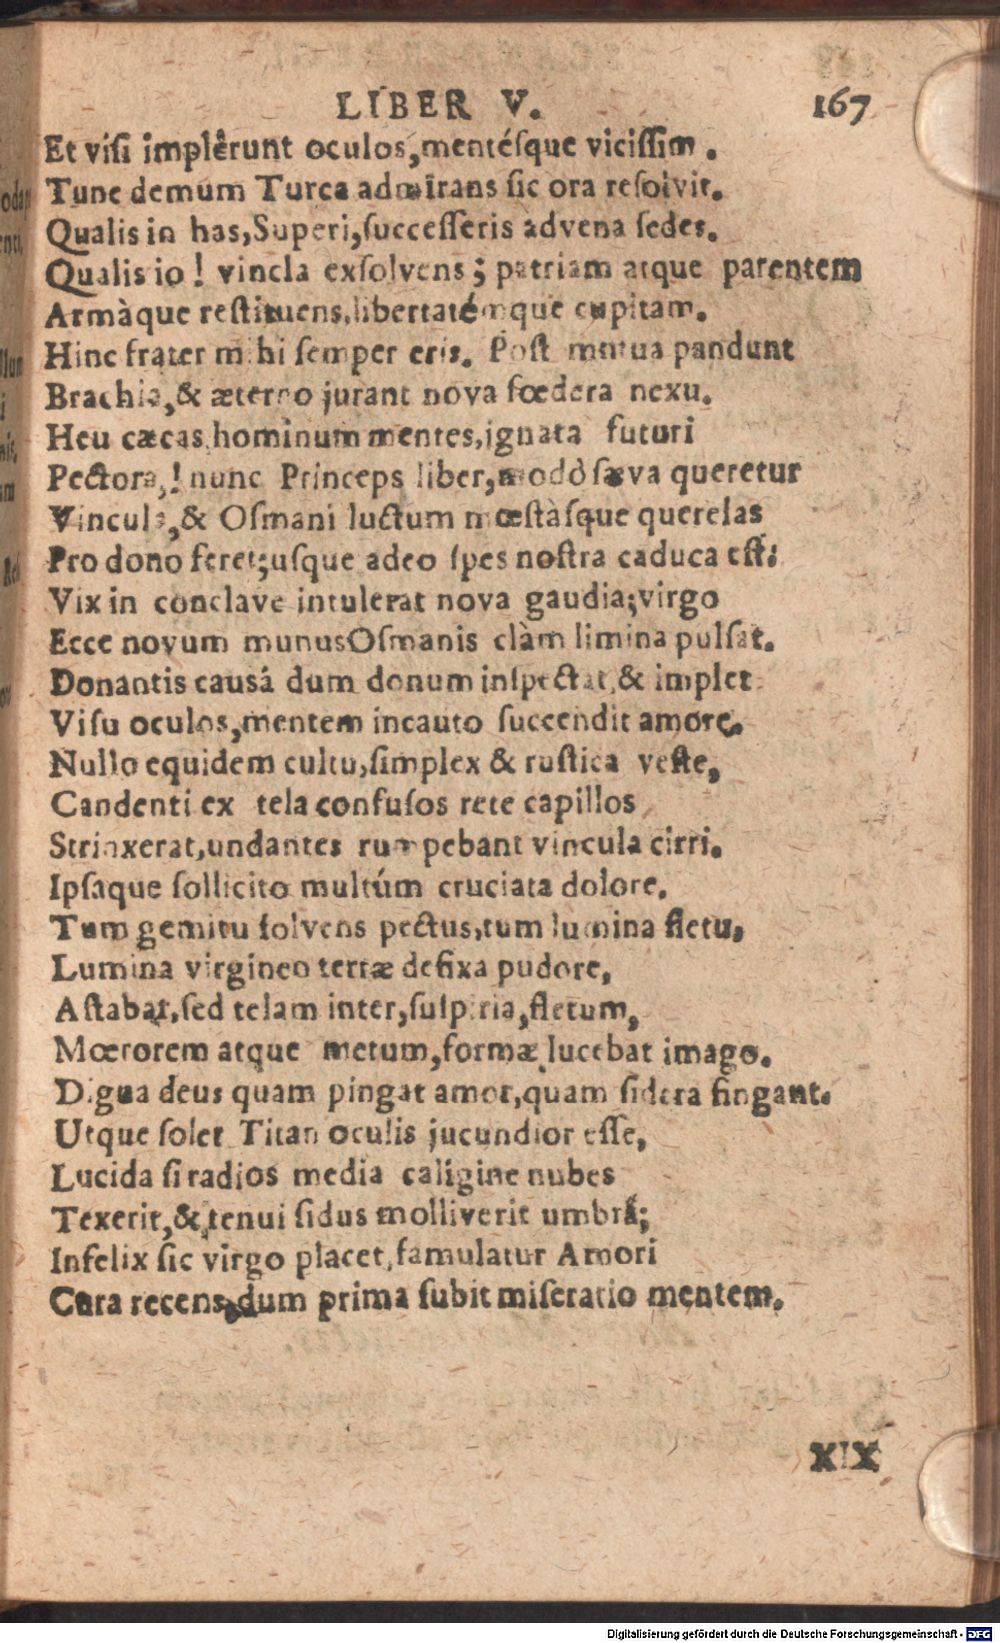 LIBER V. 167
Et visi implêrunt oculos, mentésque vicissim.
Tunc demum Turca admirans sic ora resolvit.
Qualis in has, Superi, successeris advena sedes.
Qualis io! vincla exsolvens; patriam atque parentem
Armàque restituens, libertatémque cupitam.
Hinc frater mihi semper eris. Post mutua pandunt
Brachia, & æterno jurant nova fœdera nexu.
Heu cæcas hominum mentes, ignata futuri
Pectora,! nunc Princeps liber, modò sæva queretur
Vincula, & Osmani luctum mœstàsque querelas
Pro dono feret; usque adeo spes nostra caduca est.
Vix in conclave intulerat nova gaudia; virgo
Ecce novum munus Osmanis clàm limina pulsat.
Donantis causâ dum donum inspectat, & implet
Visu oculos, mentem incauto succendit amore.
Nullo equidem cultu, simplex & rustica veste,
Candenti ex tela confusos rete capillos
Strinxerat, undantes rumpebant vincula cirri.
Ipsaque sollicito multúm cruciata dolore.
Tum gemitu solvens pectus, tum lumina fletu,
Lumina virgineo terræ defixa pudore,
Astabat, sed telam inter, suspiria, fletum,
Mœrorem atque metum, formæ lucebat imago.
Digna deus quam pingat amor, quam sidera fingant.
Utque solet Titan oculis jucundior esse,
Lucida si radios media caligine nubes
Texerit, & tenui sidus molliverit umbrâ;
Infelix sic virgo placet, famulatur Amori
Cura recens, dum prima subit miseratio mentem.
XIX
Digitalisierung gefördert durch die Deutsche Forschungsgemeinschaft - DFG